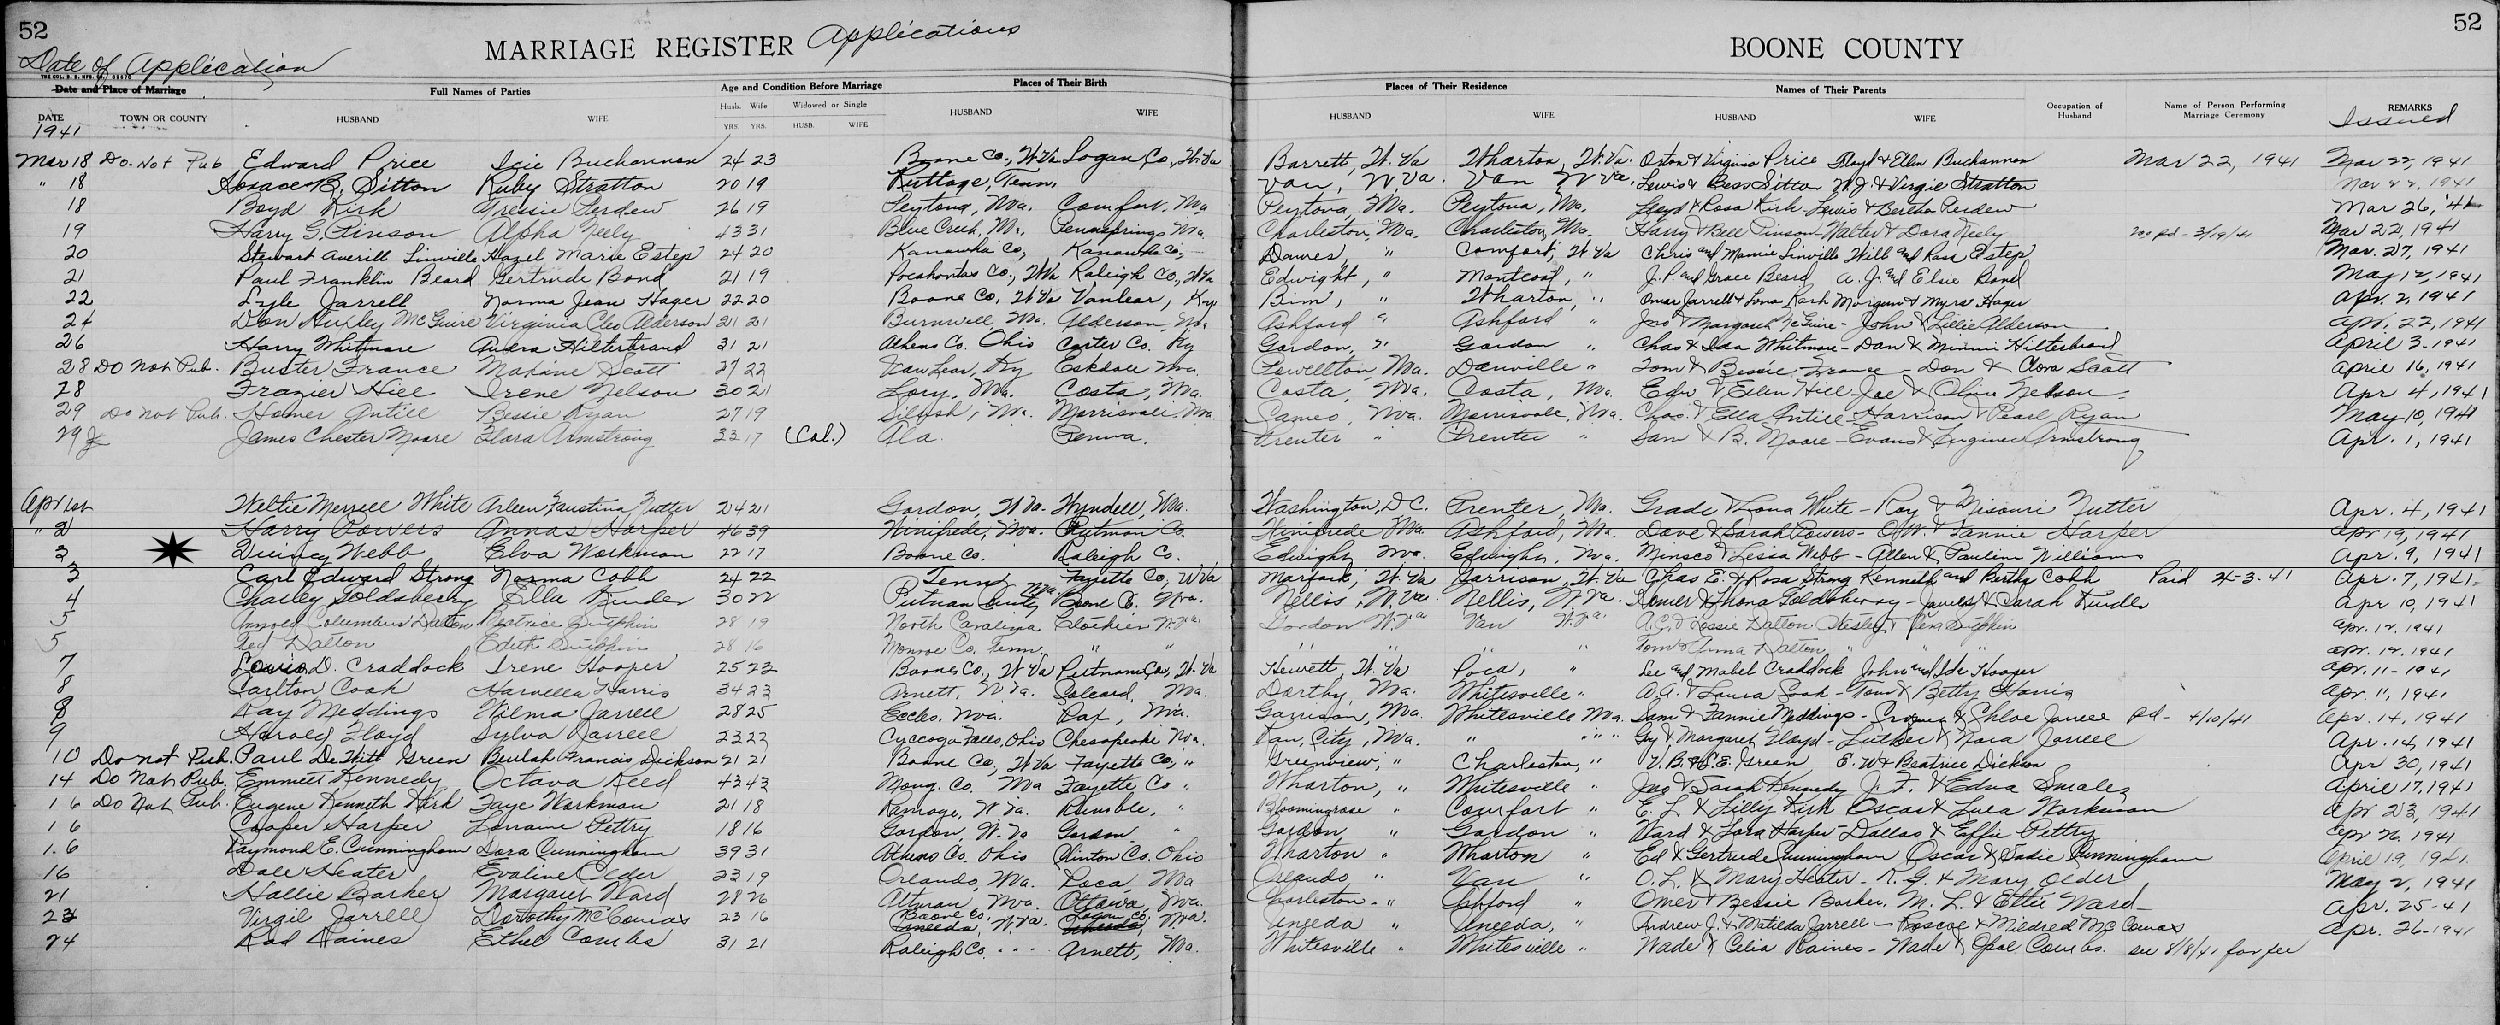 52
MARRIAGE REGISTER Applications
BOONE COUNTY
52
Date of Application
Date and Place of Marriage Full Names of Parties Age and Condition Before Marriage Places of Their Birth Places of Their Residence Names of Their Parents Occupation of Husband Name of Person Performing Marriage Ceremony REMARKS
DATE TOWN OR COUNTY HUSBAND WIFE Husb. Wife Widowed or Single HUSBAND WIFE HUSBAND WIFE HUSBAND WIFE Issued
1941 YRS. YRS. HUSB. WIFE
Mar 18 Do Not Pub Edward Price Buchannan 24 23 Boone Co., W.Va Logan Co, W.Va Barrett, W.Va Wharton, W.Va. Oston & Virginia Price Floyd & Ellen Buchannon Mar 22, 1941 Mar 22, 1941
" 18 Horace B. Sitton Ruby Stratton 20 19 Tenn. Van, W.Va. Van W Va. Lewis & Bess Sitton W.J. & Virgie Stratton Mar 22, 1941
18 Boyd Kirk Perdew 26 19 Peytona, Wva. Comfort, Wva Peytona, Wva. Peytona, Wva. Lloyd & Rosa Kirk - Lewis & Bertha Perdew Mar 26, '41
19 Harry G. Pinson Alpha Neely 43 31 Blue Creek, Wv., Wva. Charleston, Wva. Charleston, Wva. Harry & Bell Pinson - Walter & Dora Neely pd - 3/19/41 Mar 22, 1941
20 Stewart Averill Linville Hazel Marie Estep 24 20 Kanawha Co, Kanawha Co, Dawes, " Comfort, W Va Chris and Mamie Linville Will and Rosa Estep Mar. 27, 1941
21 Paul Franklin Beard Gertrude Bond 21 19 Pocahontas Co., W.Va Raleigh Co, W.Va Edwight, " Montcoal, " J.P. and Grace Beard A.J. and Elsie Bond May 12, 1941
22 Lyle Jarrell Norma Jean Hager 22 20 Boone Co, W.Va Vanlear, Ky. Bim, " Wharton, " Omar Jarrell & Lona Kash Morgan & Myra Hager Apr. 2, 1941
24 Don Huxley McGuire Virginia Cleo Alderson 21 21 Burnwell, Wva. Alderson, Wv. Ashford " Ashford " Jno & Margaret McGuire - John & Lillie Alderson Apr. 22, 1941
26 Harry Whitmore Audra Hilterbrand 31 21 Athens Co. Ohio Carter Co. Ky Gordon, " Gordon " Chas & Ida Whitmore - Dan & Minnie Hilterbrand April 3-1941
28 Do Not Pub. Buster France Maxine Scott 27 22 Van Lear, Ky Eskdale Wva. Lewellton, Wva. Danville " Tom & Bessie France - Don & Cora Scott April 16, 1941
28 Frazier Hill Irene Nelson 30 21 Lory, Wva. Costa, Wva. Costa, Wva. Costa, Wva. Edw & Ellen Hill - Joe & Olive Nelson Apr 4, 1941
29 Do Not Pub. Homer Antill Bessie Ryan 27 19 Wv. Morrisvale, Wva Cameo, Wva. Morrisvale, Wva. Chas. & Ella Antill - Harrison & Pearl Ryan May 10, 1941
29 James Chester Moore Flora Armstrong 22 17 (Col.) Ala. Penna. Prenter " Prenter " Sam & B. Moore - Evans & Armstrong Apr. 1, 1941
Apr 1st Merrell White Arleen Faustina Nutter 24 21 Gordon, W.Va. Wyndell, Wva. Washington, D.C. Prenter, Wva. Grade & Lona White - Roy & Missouri Nutter Apr. 4, 1941
" 2 Harry Powers Annas Harper 46 39 Winifrede, Wva. Putman Co. Winifrede Wva. Ashford, Wva. Dave & Sarah Powers - O.W. & Fannie Harper Apr 19, 1941
2 Quincy Webb Elva Workman 22 17 Boone Co. Raleigh Co. Edwight, Wva. Edwight, Wva. & Lesia Webb - Allen & Pauline Williams Apr. 9, 1941
3 Carl Edward Strong Norma Cobb 24 22 Tenn Fayette Co, W Va Marfork, W.Va Garrison, W.Va Chas E. & Rosa Strong Kenneth and Bertha Cobb Paid 4-3-41 Apr. 7, 1941.
4 Charley Goldsberry Ella Kinder 30 22 Putnam County Wva Boone Co. Wva. Nellis, W.Va. Nellis, W.Va. Homer & Goldsberry - James & Sarah Kinder Apr 10, 1941
5 Columbus Dalton Beatrice 28 19 North Carolina W.Va. Gordon W.Va Van W.Va. A.G. & Lessie Dalton Apr. 12, 1941
5 Ted Dalton Edith 28 16 Monroe Co, Tenn " " " " " " Tom & Anna Dalton " " Apr. 12, 1941
7 Lewis D. Craddock Irene Hooper 25 22 Boone Co, W.Va Putnam Co, W.Va Hewett, W.Va Poca, " Lee and Mabel Craddock John and Ida Hooper Apr. 11-1941
8 Carlton Cook Harvella Harris 34 23 Arnett, W.Va. Wva. Dorothy, Wva. Whitesville " A.A. & Laura Cook - Tom & Betty Harris Apr. 11, 1941
8 Ray Meddings Wilma Jarrell 28 25 Eccles, Wva. Pax, Wva. Garrison, Wva. Whitesville Wva. Sam & Fannie Meddings - & Chloe Jarrell pd - 4/10/41 Apr. 14, 1941
9 Harold Floyd Sylva Jarrell 23 22 Falls, Ohio Chesapeake Wva. City, Wva. " " " Guy & Margaret Floyd - Luther & Nora Jarrell Apr. 14, 1941
10 Do not Pub. Paul DeWitt Green Beulah Francis Dickson 21 21 Boone Co, W.Va Fayette Co, " Greenview, " Charleston, " V.B. & S.E. Green E.W. & Beatrice Dickson Apr 30, 1941
14 Do Not Pub. Emmett Kennedy Octava Reed 43 43 Mong. Co. Wva Fayette Co " Wharton, " Whitesville " Jno & Sarah Kennedy J.F. & Edna April 17, 1941
16 Do Not Pub. Eugene Kenneth Kirk Faye Workman 21 18 Ramage, W.Va. Rumble, " Bloomingrose " Comfort " E.L. & Lilly Kirk Oscar & Lula Workman Apr 23, 1941
16 Cooper Harper Lorraine Pettry 18 16 Gordon, W.Va Gordon " Gordon " Gordon " Ward & Lora Harper - Dallas & Effie Pettry Apr 26. 1941
16 Raymond E. Cunningham Dora Cunningham 39 31 Athens Co. Ohio Clinton Co. Ohio Wharton " Wharton " Ed & Gertrude Cunningham Oscar & Sadie Cunningham April 19, 1941.
16 Dale Heater Evaline Older 23 19 Orlando, Wva. Poca, Wva Orlando " Van " O.L. & Mary Heater - R.G. & Mary Older May 2, 1941
21 Hallie Barker Margaret Ward 28 26 Altman, Wva. Ottawa, Wva. Charleston " Ashford " Omer & Bessie Barker, M.L. & Ettie Ward - Apr. 25-41
23 Virgil Jarrell Dorothy McComas 23 16 Boone Co. Uneeda, W.Va. Logan Co. W.Va. Uneeda " Uneeda, " Andrew J. & Matilda Jarrell - Roscoe & Mildred McComas Apr. 26-1941
24 Rod Raines Ethel Combs 31 21 Raleigh Co. Arnett, Wva. Whitesville " Whitesville " Wade & Celia Raines - Wade & Opal Combs. see 8/8/41 for fee